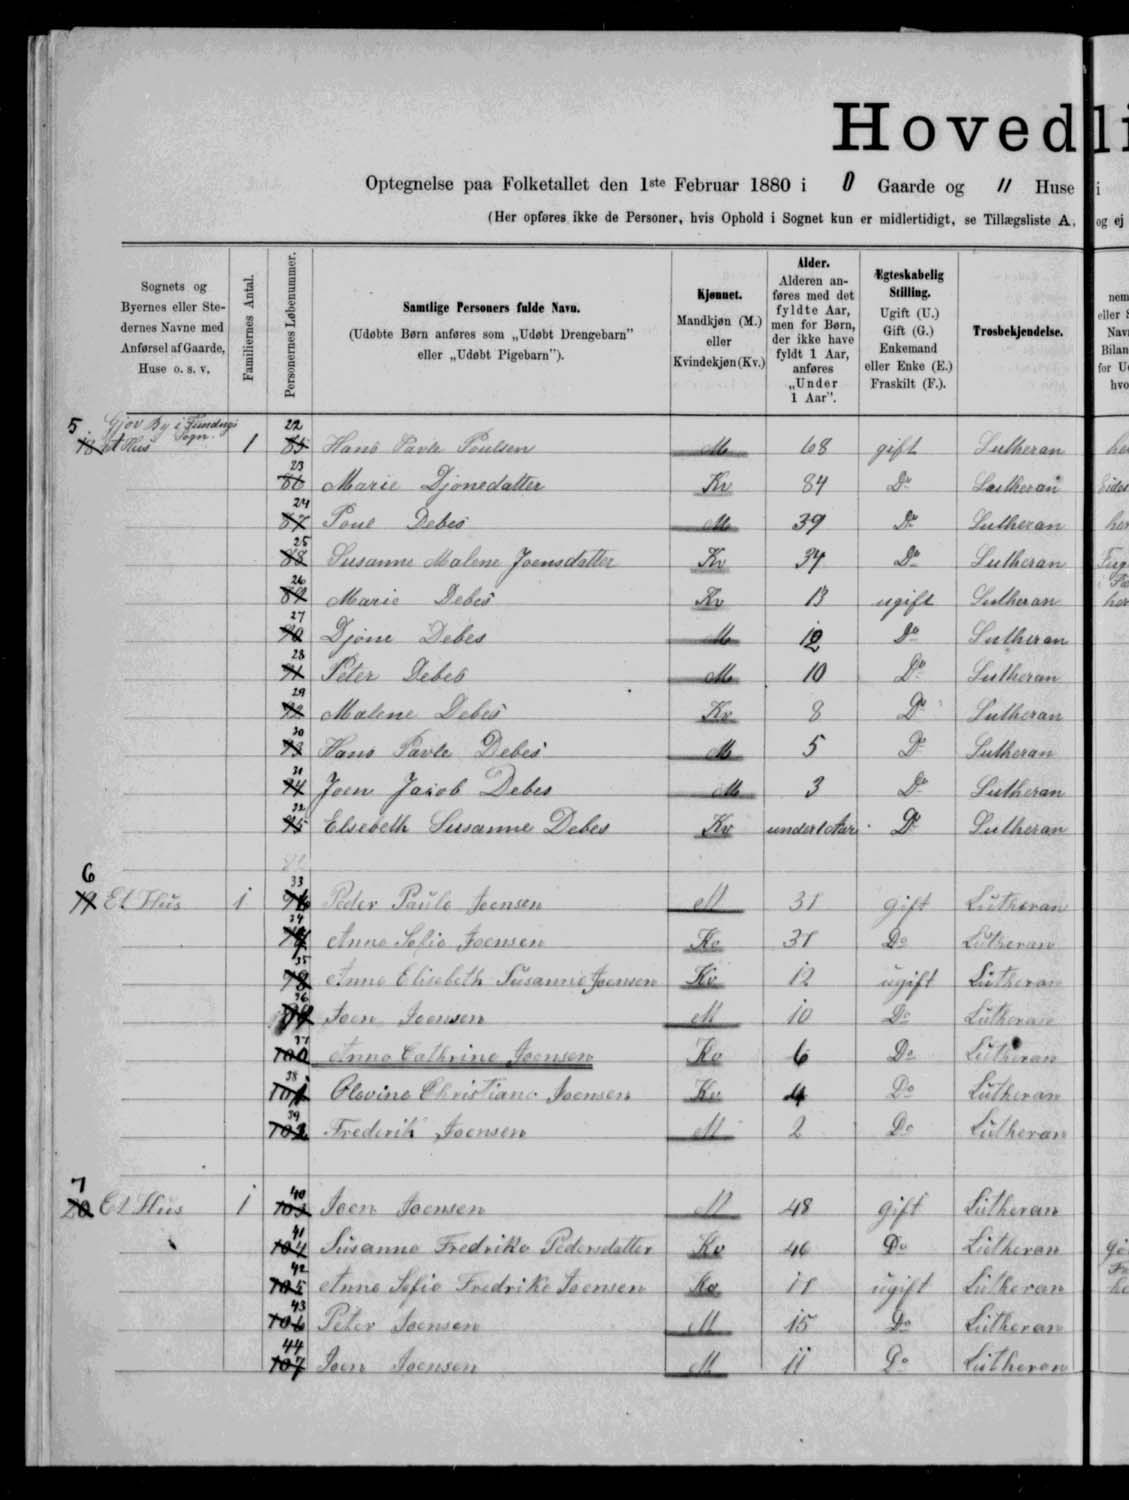 Hovedli
Optegnelse paa Folketallet den 1ste Februar 1880 i 0 Gaarde og 11 Huse i
(Her opføres ikke de Personer, hvis Ophold i Sognet kun er midlertidigt, se Tillægsliste A, og ej
Sognets og Byernes eller Stedernes Navne med Anførsel af Gaarde, Huse o. s. v.
Familiernes Antal.
Personernes Løbenummer.
Samtlige Personers fulde Navn.
(Udøbte Børn anføres som „Udøbt Drengebarn" eller „Udøbt Pigebarn").
Kjønnet.
Mandkjøn (M.) eller Kvindekjøn (Kv.)
Alder.
Alderen anføres med det fyldte Aar, men for Børn, der ikke have fyldt 1 Aar, anføres „Under 1 Aar".
Ægteskabelig Stilling.
Ugift (U.) Gift (G.) Enkemand eller Enke (E.) Fraskilt (F.).
Trosbekjendelse.
Gjov By i Fundings Sogn.
5 18 Et Hus 1 22 85 Hans Pavle Poulsen M 68 gift Lutheran
23 86 Marie Djonedatter Kv 84 Do Lutheran
24 87 Poul Debes M 39 Do Lutheran
25 88 Susanne Malene Joensdatter Kv 34 Do Lutheran
26 89 Marie Debes Kv 13 ugift Lutheran
27 90 Djone Debes M 12 Do Lutheran
28 91 Peter Debes M 10 Do Lutheran
29 92 Malene Debes Kv 8 Do Lutheran
30 93 Hans Pavle Debes M 5 Do Lutheran
31 94 Joen Jacob Debes M 3 Do Lutheran
32 95 Elsebeth Susanne Debes Kv under 1 Aar Do Lutheran
6 19 Et Hus 1 33 96 Peder Paulo Joensen M 31 gift Lutheran
34 97 Anna Sofie Joensen Kv 31 Do Lutheran
35 98 Anna Elisebeth Susanne Joensen Kv 12 ugift Lutheran
36 99 Joen Joensen M 10 Do Lutheran
37 100 Anna Cathrine Joensen Kv 6 Do Lutheran
38 101 Olevine Christiane Joensen Kv 4 Do Lutheran
39 102 Frederik Joensen M 2 Do Lutheran
7 20 Et Hus 1 40 103 Joen Joensen M 48 gift Lutheran
41 104 Susanne Fredrike Pedersdatter Kv 46 Do Lutheran
42 105 Anna Sofie Fredrike Joensen Kv ugift Lutheran
43 106 Peter Joensen M 15 Do Lutheran
44 107 Joen Joensen M 11 Do Lutheran